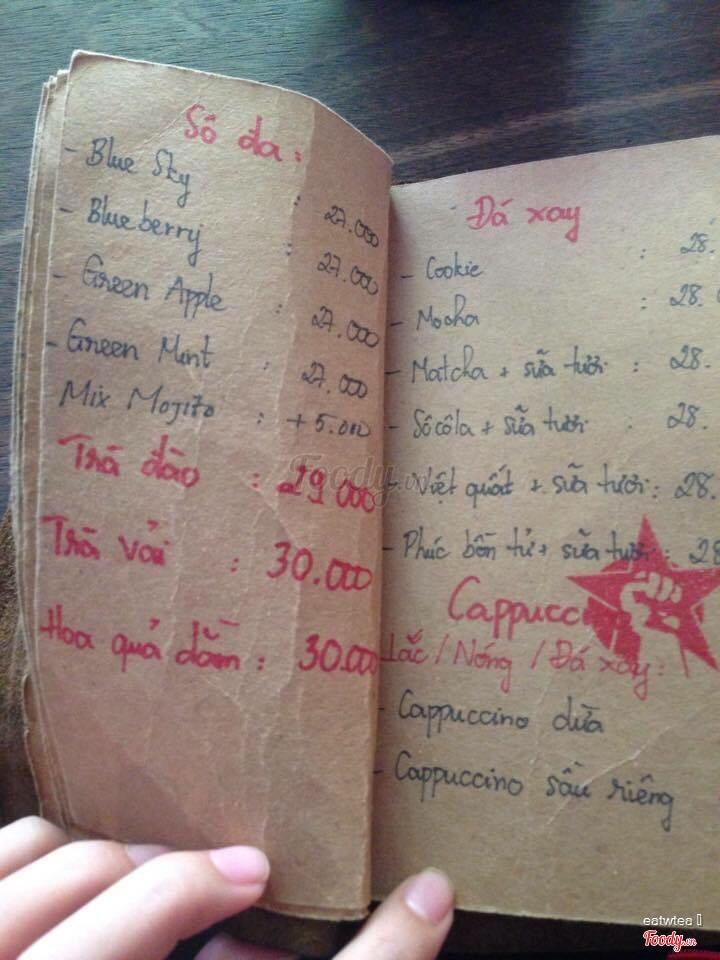 Sô đa :
- Blue Sky : 27.000
- Blueberry : 27.000
- Green Apple : 27.000
- Green Mint : 27.000
Mix Mojito : + 5.000
Trà đào : 29.000
Trà vải : 30.000
Hoa quả dầm : 30.000
Đá xay
- Cookie : 28.
- Mocha : 28.
- Matcha + sữa tươi : 28.
- Sôcôla + sữa tươi : 28.
- Việt quất + sữa tươi : 28.
- Phúc bồn tử + sữa tươi : 28
Cappucci
Lắc / Nóng / Đá xay :
- Cappuccino dừa
- Cappuccino sầu riêng
Foody.vn
eatwtea
Foody.vn